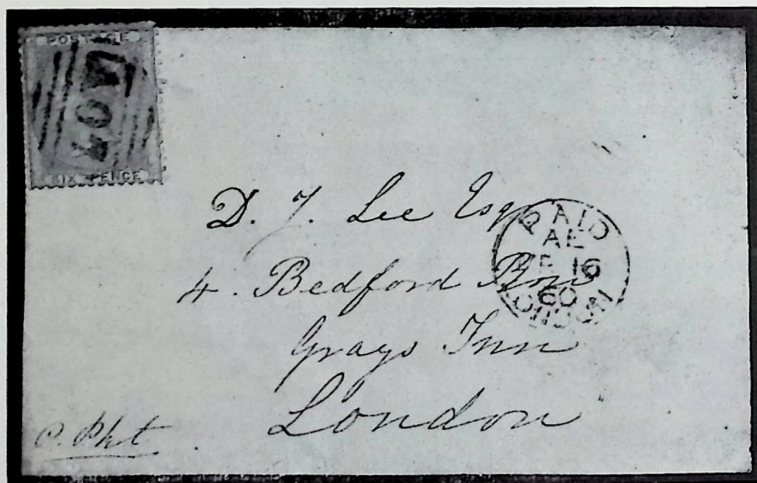 POSTAGE
A07
SIX PENCE
D. J. Lee Esq
4. Bedford Row
Grays Inn
London
PAID
AE
16
60
LONDON
P. Pkt